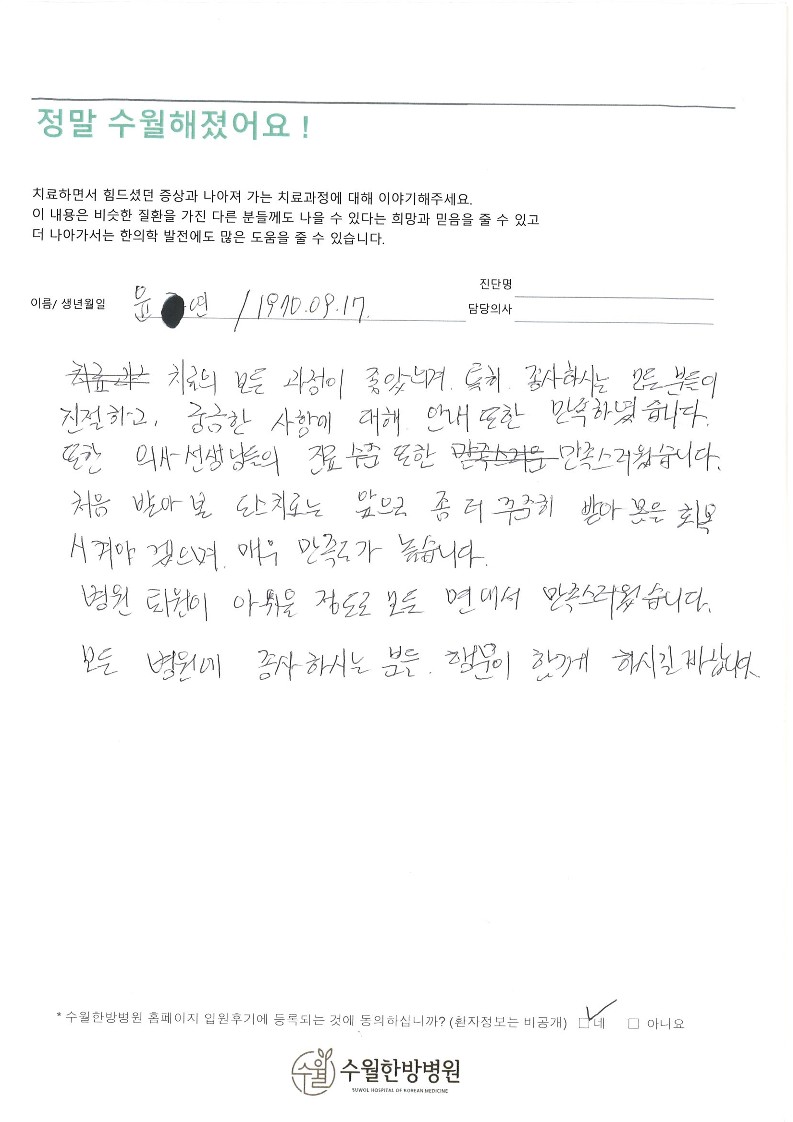 정말 수월해졌어요 !
치료하면서 힘드셨던 증상과 나아져 가는 치료과정에 대해 이야기해주세요.
이 내용은 비슷한 질환을 가진 다른 분들께도 나을 수 있다는 희망과 믿음을 줄 수 있고
더 나아가서는 한의학 발전에도 많은 도움을 줄 수 있습니다.
진단명
이름/ 생년월일 윤 연 / 1970.09.17.
담당의사
치료의 모든 과정이 좋았으며. 특히. 종사하시는 모든 분들이
친절하고, 궁금한 사항에 대해 안내 또한 만족하였습니다.
또한 의사 선생님들의 진료 수준 또한 만족스러웠습니다.
처음 받아 본 도수치료는 앞으로 좀 더 꾸준히 받아 몸을 회복
시켜야 겠으며. 매우 만족도가 높습니다.
병원 퇴원이 아쉬울 정도로 모든 면에서 만족스러웠습니다.
모든 병원에 종사하시는 분들. 행운이 함께 하시길 바랍니다
* 수월한방병원 홈페이지 입원후기에 등록되는 것에 동의하십니까? (환자정보는 비공개) ☑네 □ 아니요
수월 수월한방병원
SUWOL HOSPITAL OF KOREAN MEDICINE